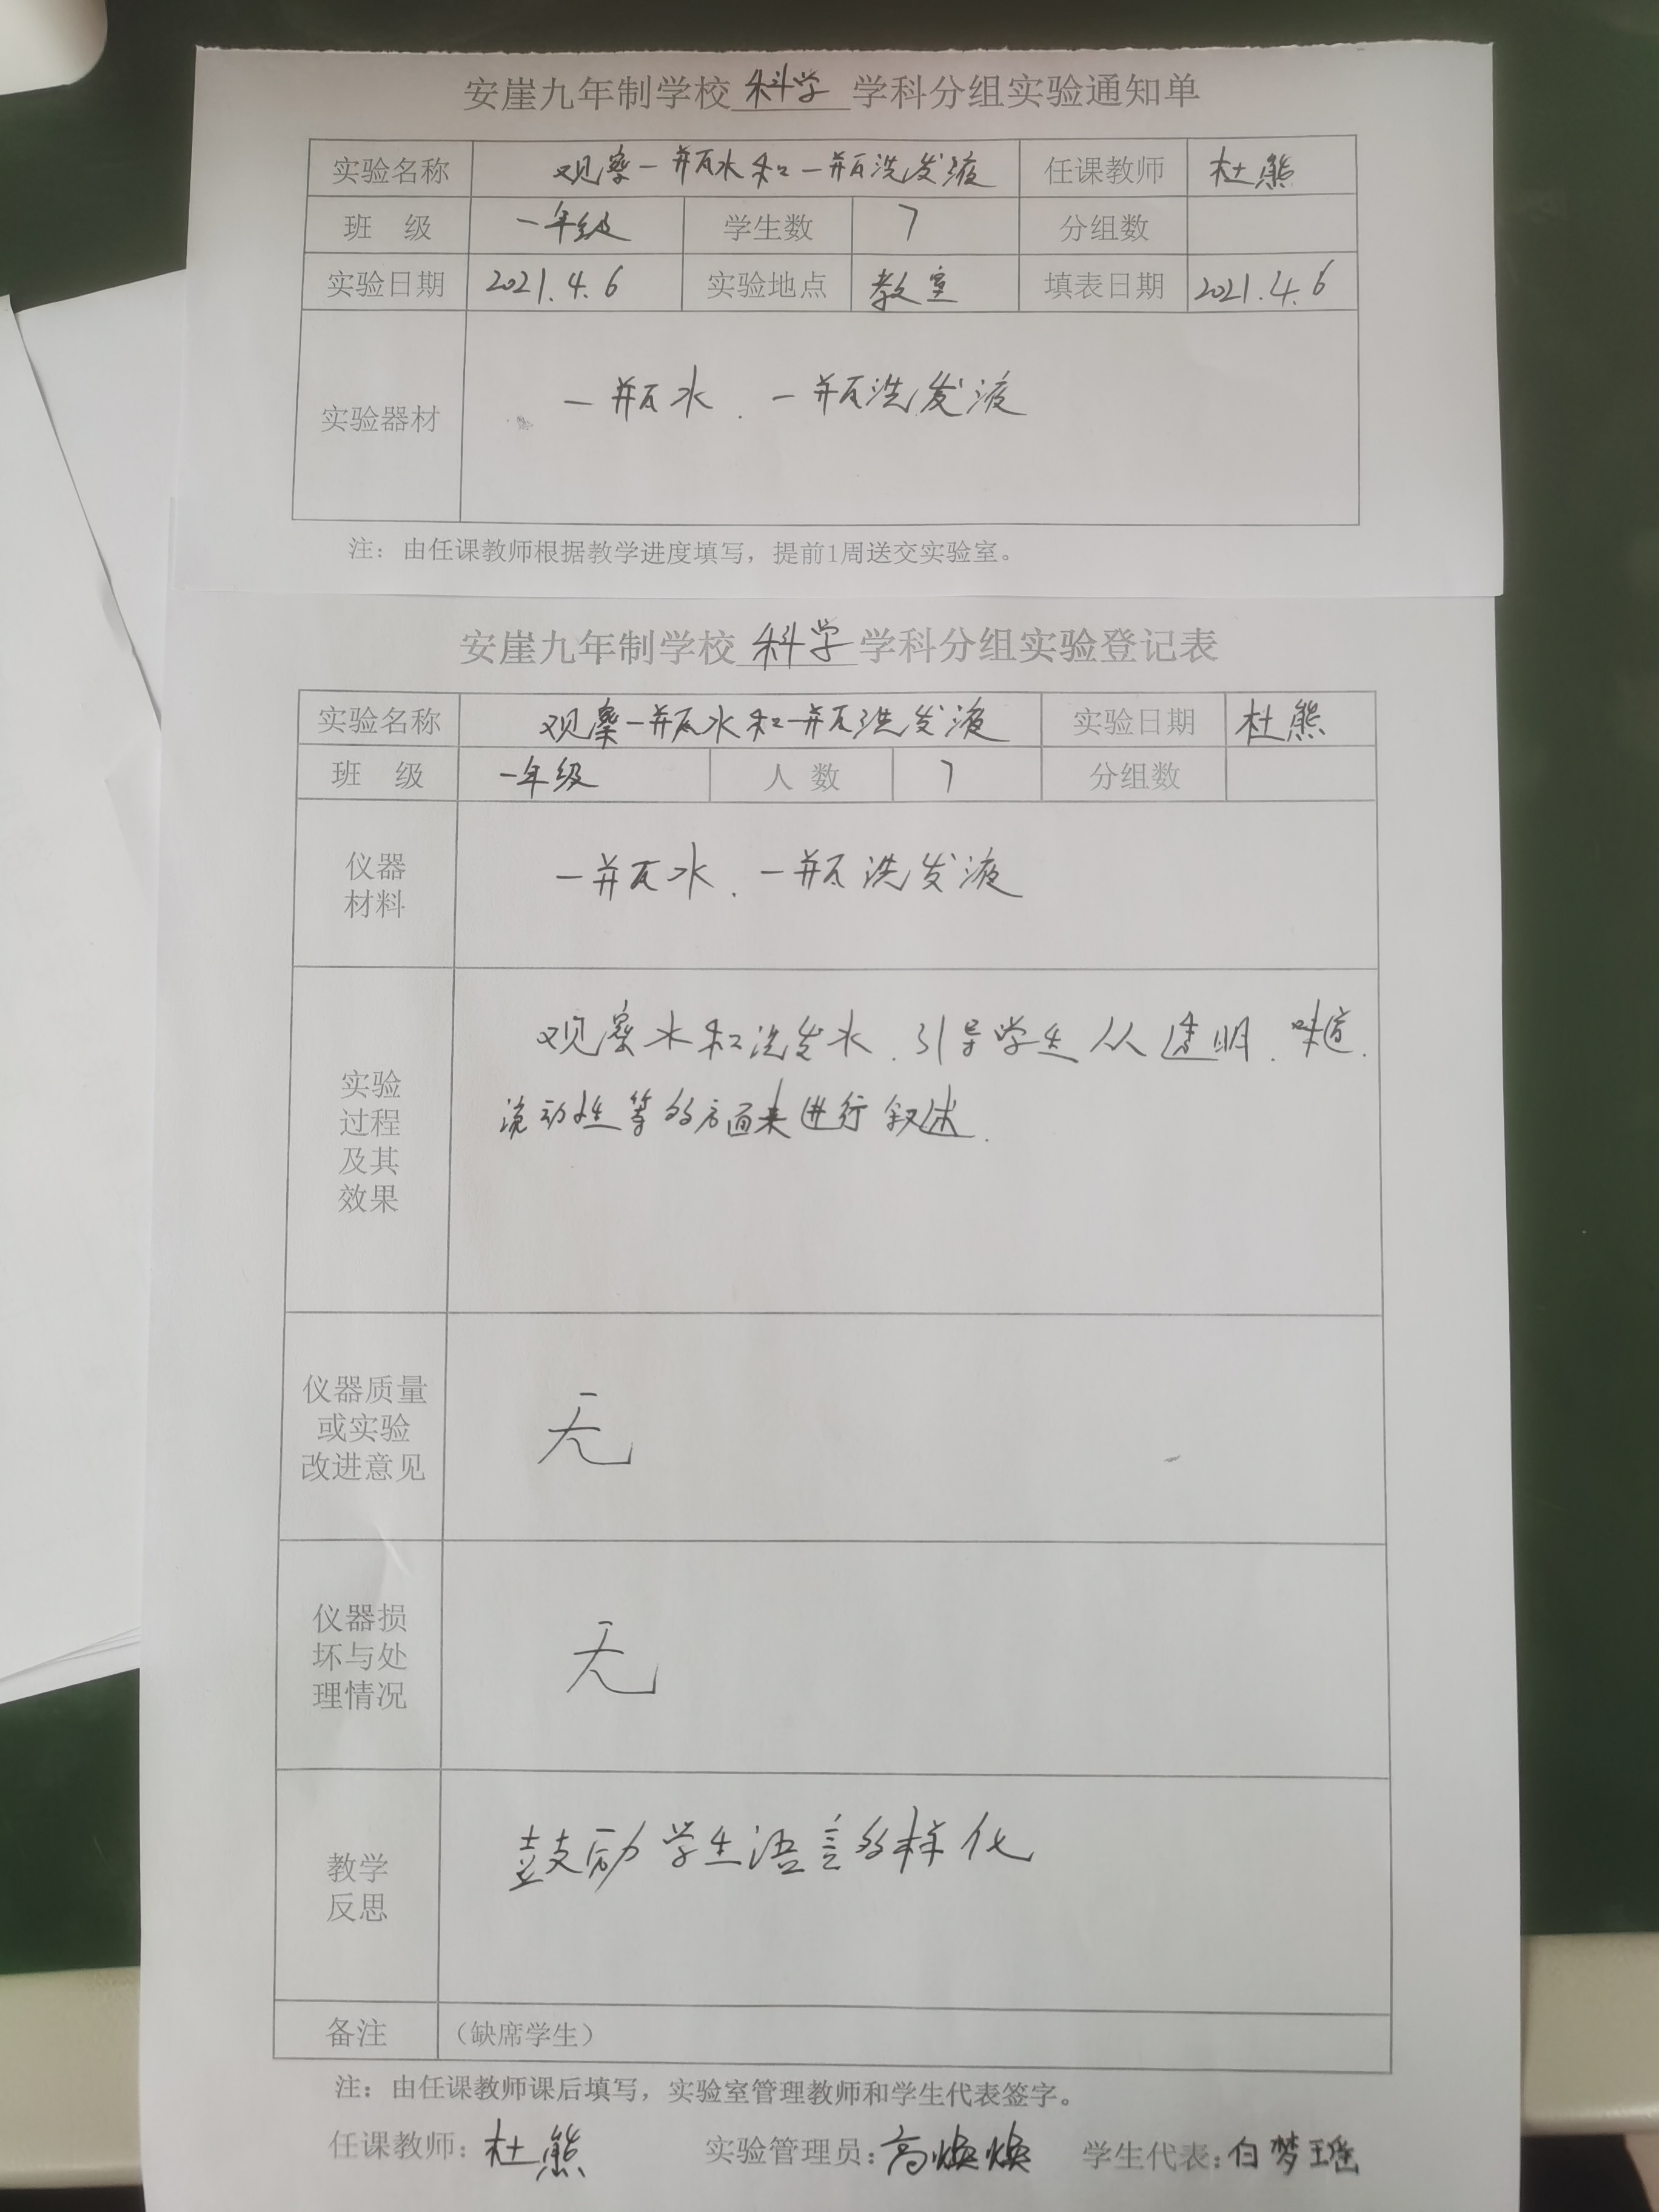 安崖九年制学校 科学 学科分组实验通知单
实验名称 观察一瓶水和一瓶洗发液 任课教师 杜熊
班 级 一年级 学生数 7 分组数
实验日期 2021.4.6 实验地点 教室 填表日期 2021.4.6
实验器材 一瓶水、一瓶洗发液
注：由任课教师根据教学进度填写，提前1周送交实验室。
安崖九年制学校 科学 学科分组实验登记表
实验名称 观察一瓶水和一瓶洗发液 实验日期 杜熊
班 级 一年级 人 数 7 分组数
仪器
材料
一瓶水、一瓶洗发液
实验
过程
及其
效果
观察水和洗发水、引导学生从透明、味道、
流动性等的方面来进行叙述.
仪器质量
或实验
改进意见
无
仪器损
坏与处
理情况
无
教学
反思
鼓励学生语言多样化
备注 （缺席学生）
注：由任课教师课后填写，实验室管理教师和学生代表签字。
任课教师：杜熊 实验管理员：高焕焕 学生代表：白梦瑶